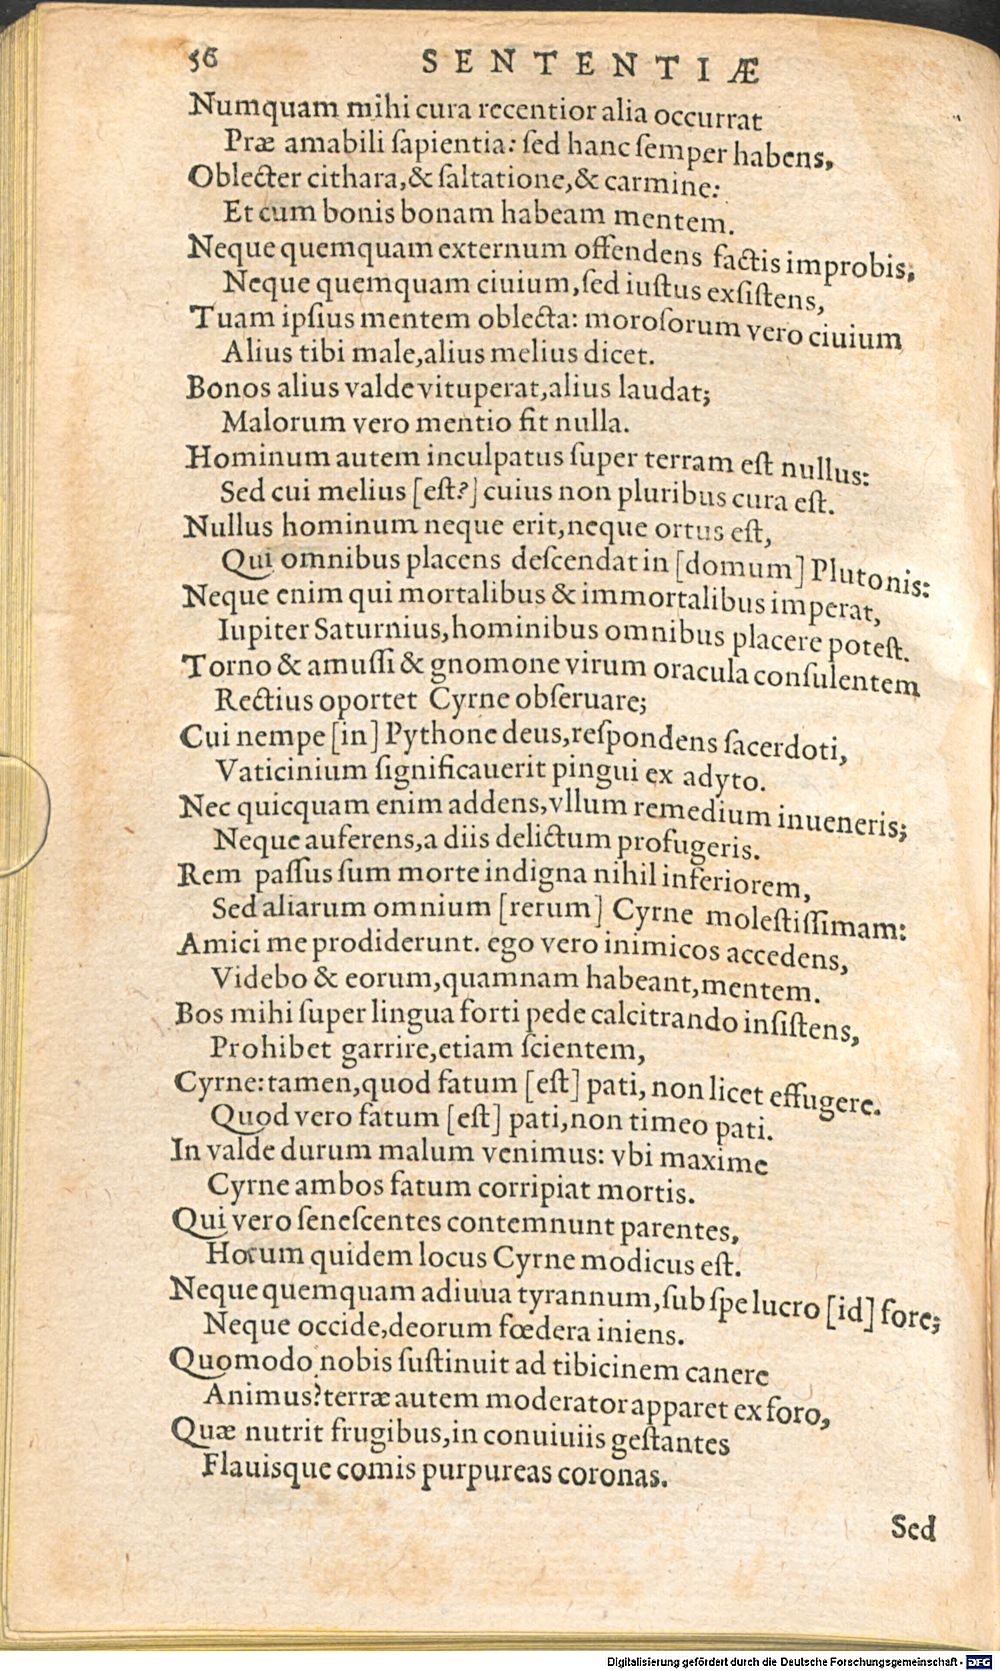 56 SENTENTIÆ
Numquam mihi cura recentior alia occurrat
Præ amabili ſapientia: ſed hanc ſemper habens,
Oblecter cithara,& ſaltatione,& carmine:
Et cum bonis bonam habeam mentem.
Neque quemquam externum offendens factis improbis,
Neque quemquam ciuium,ſed iuſtus exſiſtens,
Tuam ipſius mentem oblecta: moroſorum vero ciuium
Alius tibi male,alius melius dicet.
Bonos alius valde vituperat,alius laudat;
Malorum vero mentio fit nulla.
Hominum autem inculpatus ſuper terram eſt nullus:
Sed cui melius [eſt?] cuius non pluribus cura eſt.
Nullus hominum neque erit,neque ortus eſt,
Qui omnibus placens deſcendat in [domum] Plutonis:
Neque enim qui mortalibus & immortalibus imperat,
Iupiter Saturnius,hominibus omnibus placere poteſt.
Torno & amuſſi & gnomone virum oracula conſulentem
Rectius oportet Cyrne obſeruare;
Cui nempe [in] Pythone deus,reſpondens ſacerdoti,
Vaticinium ſignificauerit pingui ex adyto.
Nec quicquam enim addens,vllum remedium inueneris;
Neque auferens,a diis delictum profugeris.
Rem paſſus ſum morte indigna nihil inferiorem,
Sed aliarum omnium [rerum] Cyrne moleſtiſſimam:
Amici me prodiderunt. ego vero inimicos accedens,
Videbo & eorum,quamnam habeant,mentem.
Bos mihi ſuper lingua forti pede calcitrando inſiſtens,
Prohibet garrire,etiam ſcientem,
Cyrne:tamen,quod fatum [eſt] pati, non licet effugere.
Quod vero fatum [eſt] pati,non timeo pati.
In valde durum malum venimus: vbi maxime
Cyrne ambos fatum corripiat mortis.
Qui vero ſeneſcentes contemnunt parentes,
Horum quidem locus Cyrne modicus eſt.
Neque quemquam adiuua tyrannum,ſub ſpe lucro [id] fore;
Neque occide,deorum fœdera iniens.
Quomodo nobis ſuſtinuit ad tibicinem canere
Animus?terræ autem moderator apparet ex foro,
Quæ nutrit frugibus,in conuiuiis geſtantes
Flauisque comis purpureas coronas.
Sed
Digitalisierung gefördert durch die Deutsche Forschungsgemeinschaft - DFG